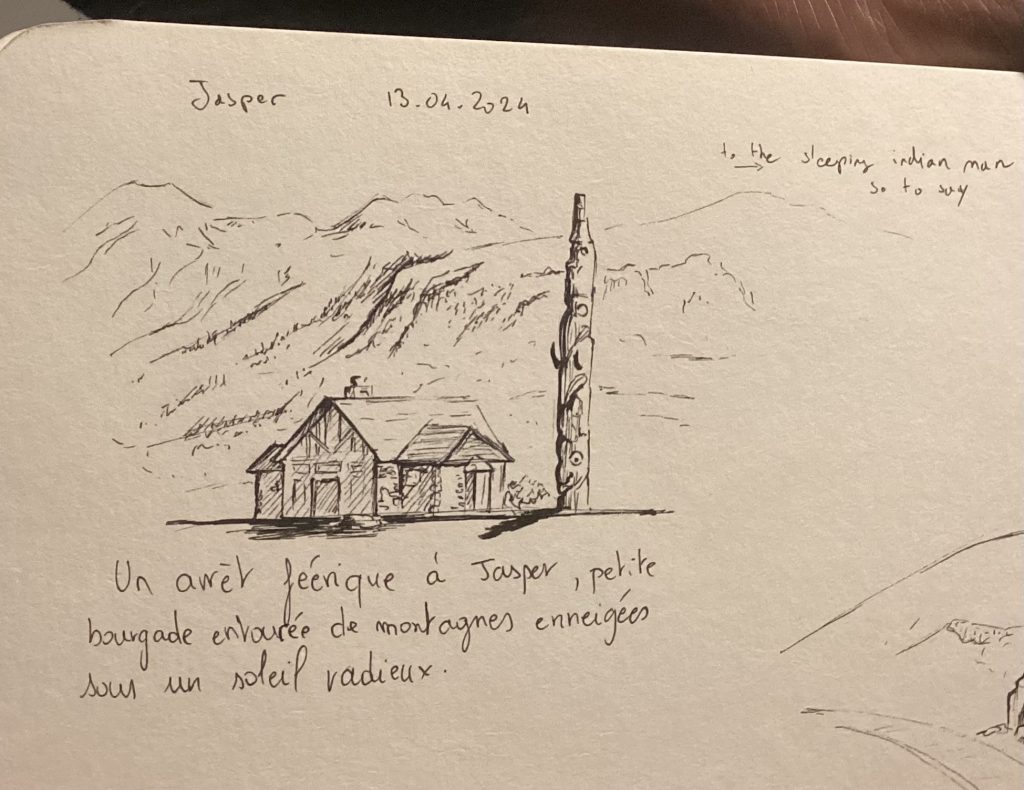 Jasper 13.04.2024
to the sleeping indian man
so to say
Un arrêt féérique à Jasper, petite
bourgade entourée de montagnes enneigées
sous un soleil radieux.